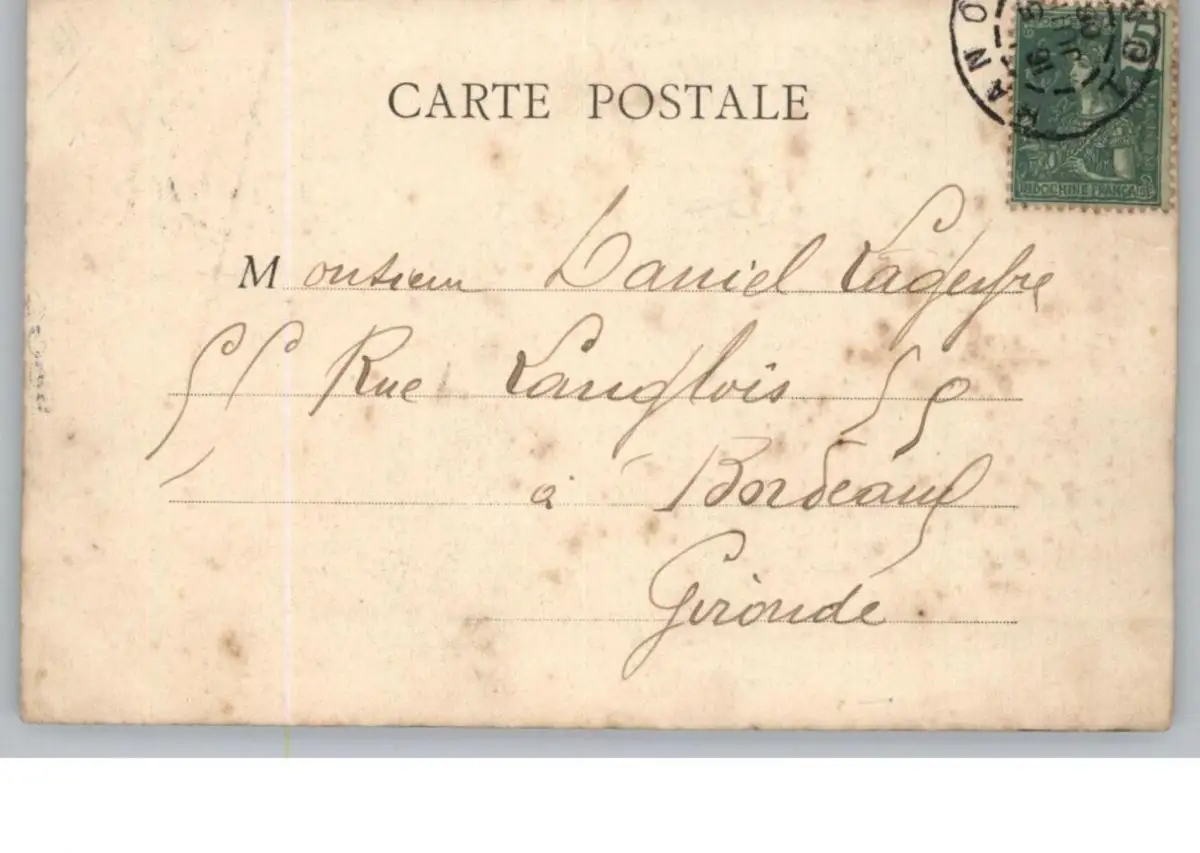 CARTE POSTALE
5
INDOCHINE FRANÇAISE
Monsieur Daniel
55 Rue Langlois 55
à Bordeaux
Gironde